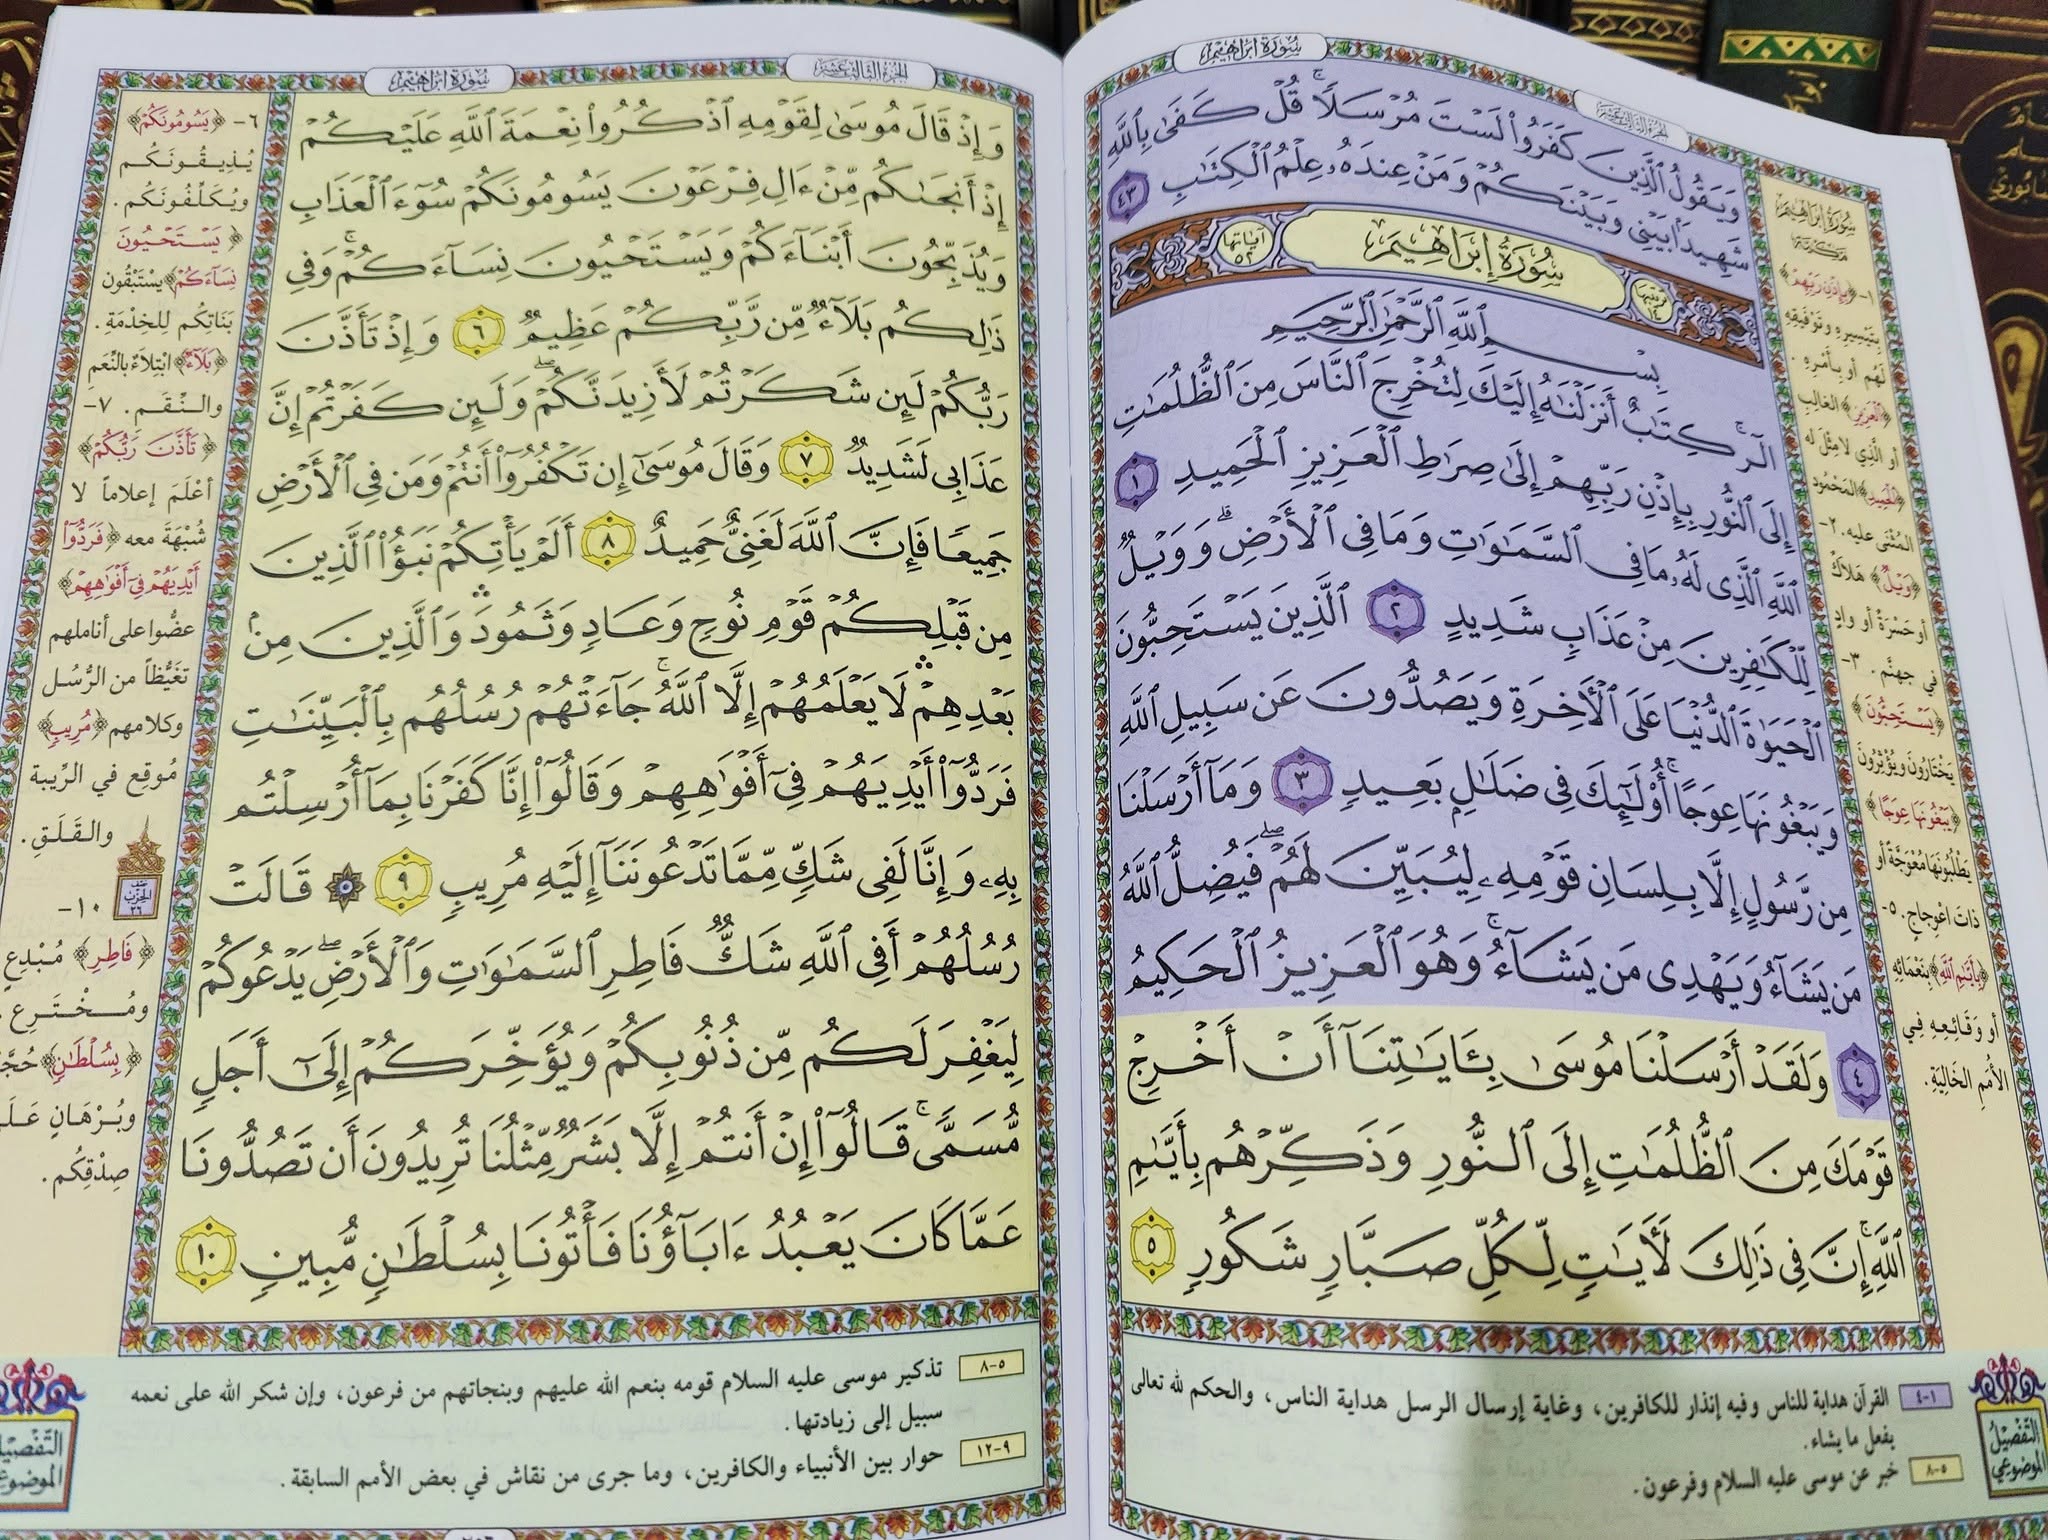 سُورَةُ إِبْرَاهِيمَ
الجُزْءُ الثَّالِثَ عَشَرَ
وَيَقُولُ ٱلَّذِينَ كَفَرُوا۟ لَسْتَ مُرْسَلًا ۚ قُلْ كَفَىٰ بِٱللَّهِ
شَهِيدًۢا بَيْنِى وَبَيْنَكُمْ وَمَنْ عِندَهُۥ عِلْمُ ٱلْكِتَٰبِ ٤٣
ترتيبها ١٤ سُورَةُ إِبْرَاهِيمَ آياتها ٥٢
بِسْمِ ٱللَّهِ ٱلرَّحْمَٰنِ ٱلرَّحِيمِ
الٓر ۚ كِتَٰبٌ أَنزَلْنَٰهُ إِلَيْكَ لِتُخْرِجَ ٱلنَّاسَ مِنَ ٱلظُّلُمَٰتِ
إِلَى ٱلنُّورِ بِإِذْنِ رَبِّهِمْ إِلَىٰ صِرَٰطِ ٱلْعَزِيزِ ٱلْحَمِيدِ ١
ٱللَّهِ ٱلَّذِى لَهُۥ مَا فِى ٱلسَّمَٰوَٰتِ وَمَا فِى ٱلْأَرْضِ ۗ وَوَيْلٌ
لِّلْكَٰفِرِينَ مِنْ عَذَابٍ شَدِيدٍ ٢ ٱلَّذِينَ يَسْتَحِبُّونَ
ٱلْحَيَوٰةَ ٱلدُّنْيَا عَلَى ٱلْأَخِرَةِ وَيَصُدُّونَ عَن سَبِيلِ ٱللَّهِ
وَيَبْغُونَهَا عِوَجًا ۚ أُو۟لَٰٓئِكَ فِى ضَلَٰلٍۭ بَعِيدٍ ٣ وَمَآ أَرْسَلْنَا
مِن رَّسُولٍ إِلَّا بِلِسَانِ قَوْمِهِۦ لِيُبَيِّنَ لَهُمْ ۖ فَيُضِلُّ ٱللَّهُ
مَن يَشَآءُ وَيَهْدِى مَن يَشَآءُ ۚ وَهُوَ ٱلْعَزِيزُ ٱلْحَكِيمُ
٤ وَلَقَدْ أَرْسَلْنَا مُوسَىٰ بِـَٔايَٰتِنَآ أَنْ أَخْرِجْ
قَوْمَكَ مِنَ ٱلظُّلُمَٰتِ إِلَى ٱلنُّورِ وَذَكِّرْهُم بِأَيَّىٰمِ
ٱللَّهِ ۚ إِنَّ فِى ذَٰلِكَ لَأٓيَٰتٍ لِّكُلِّ صَبَّارٍ شَكُورٍ ٥
سُورَةُ إِبْرَاهِيمَ
مَكيّة
١- ﴿بِإِذْنِ رَبِّهِمْ﴾
بِتَيْسِيرِهِ وتَوْفِيقِهِ
لَهُم أو بِأَمْرِهِ.
﴿ٱلْعَزِيزِ﴾ الغالِبِ
أو الَّذِي لا مِثْلَ له
﴿ٱلْحَمِيدِ﴾ المَحْمُود
المُثْنَى عليه. ٢-
﴿وَيْلٌ﴾ هَلاكٌ
أو حَسْرَةٌ أو وادٍ
في جهنَّم. ٣-
﴿يَسْتَحِبُّونَ﴾
يَخْتَارُونَ ويُؤْثِرُونَ
﴿يَبْغُونَهَا عِوَجًا﴾
يَطْلُبُونَهَا مُعْوَجَّةً أو
ذاتَ اعْوِجاجٍ. ٥-
﴿بِأَيَّىٰمِ ٱللَّهِ﴾ بِنَعْمَائِهِ
أو وَقَائِعِهِ فِي
الأُمَمِ الخَالِيَةِ.
التَّفْصِيلُ
المَوْضُوعِي
١-٤ القرآن هداية للناس وفيه إنذار للكافرين، وغاية إرسال الرسل هداية الناس، والحكم لله تعالى
يفعل ما يشاء.
٥-٨ خبر عن موسى عليه السلام وفرعون.
الجُزْءُ الثَّالِثَ عَشَرَ
سُورَةُ إِبْرَاهِيمَ
وَإِذْ قَالَ مُوسَىٰ لِقَوْمِهِ ٱذْكُرُوا۟ نِعْمَةَ ٱللَّهِ عَلَيْكُمْ
إِذْ أَنجَىٰكُم مِّنْ ءَالِ فِرْعَوْنَ يَسُومُونَكُمْ سُوٓءَ ٱلْعَذَابِ
وَيُذَبِّحُونَ أَبْنَآءَكُمْ وَيَسْتَحْيُونَ نِسَآءَكُمْ ۚ وَفِى
ذَٰلِكُم بَلَآءٌ مِّن رَّبِّكُمْ عَظِيمٌ ٦ وَإِذْ تَأَذَّنَ
رَبُّكُمْ لَئِن شَكَرْتُمْ لَأَزِيدَنَّكُمْ ۖ وَلَئِن كَفَرْتُمْ إِنَّ
عَذَابِى لَشَدِيدٌ ٧ وَقَالَ مُوسَىٰٓ إِن تَكْفُرُوٓا۟ أَنتُمْ وَمَن فِى ٱلْأَرْضِ
جَمِيعًا فَإِنَّ ٱللَّهَ لَغَنِىٌّ حَمِيدٌ ٨ أَلَمْ يَأْتِكُمْ نَبَؤُا۟ ٱلَّذِينَ
مِن قَبْلِكُمْ قَوْمِ نُوحٍ وَعَادٍ وَثَمُودَ ۛ وَٱلَّذِينَ مِنۢ
بَعْدِهِمْ ۛ لَا يَعْلَمُهُمْ إِلَّا ٱللَّهُ ۚ جَآءَتْهُمْ رُسُلُهُم بِٱلْبَيِّنَٰتِ
فَرَدُّوٓا۟ أَيْدِيَهُمْ فِىٓ أَفْوَٰهِهِمْ وَقَالُوٓا۟ إِنَّا كَفَرْنَا بِمَآ أُرْسِلْتُم
بِهِۦ وَإِنَّا لَفِى شَكٍّ مِّمَّا تَدْعُونَنَآ إِلَيْهِ مُرِيبٍ ٩ ۞ قَالَتْ
رُسُلُهُمْ أَفِى ٱللَّهِ شَكٌّ فَاطِرِ ٱلسَّمَٰوَٰتِ وَٱلْأَرْضِ ۖ يَدْعُوكُمْ
لِيَغْفِرَ لَكُم مِّن ذُنُوبِكُمْ وَيُؤَخِّرَكُمْ إِلَىٰٓ أَجَلٍ
مُّسَمًّى ۚ قَالُوٓا۟ إِنْ أَنتُمْ إِلَّا بَشَرٌ مِّثْلُنَا تُرِيدُونَ أَن تَصُدُّونَا
عَمَّا كَانَ يَعْبُدُ ءَابَآؤُنَا فَأْتُونَا بِسُلْطَٰنٍ مُّبِينٍ ١٠
٦- ﴿يَسُومُونَكُمْ﴾
يُذِيقُونَكُم
ويُكَلِّفُونَكُم.
﴿يَسْتَحْيُونَ
نِسَآءَكُمْ﴾ يَسْتَبْقُون
بَنَاتِكُم لِلخِدْمَةِ.
﴿بَلَآءٌ﴾ ابْتِلاءٌ بالنِّعَمِ
والنِّقَمِ. ٧-
﴿تَأَذَّنَ رَبُّكُمْ﴾
أعْلَمَ إعلاماً لا
شُبْهَةَ معه ﴿فَرَدُّوٓا۟
أَيْدِيَهُمْ فِىٓ أَفْوَٰهِهِمْ﴾
عضُّوا على أناملهم
تغَيُّظاً من الرُّسُل
وكلامهم ﴿مُرِيبٍ﴾
مُوقِع في الرِّيبة
والقَلَقِ.
نصف
الحزب
٢٦
١٠-
﴿فَاطِرِ﴾ مُبْدِعِ
ومُخْتَرِع.
﴿بِسُلْطَٰنٍ﴾
وبُرْهَانٍ
صِدْقِكُم.
٥-٨ تذكير موسى عليه السلام قومه بنعم الله عليهم وبنجاتهم من فرعون، وإن شكر الله على نعمه
سبيل إلى زيادتها.
٩-١٢ حوار بين الأنبياء والكافرين، وما جرى من نقاش في بعض الأمم السابقة.